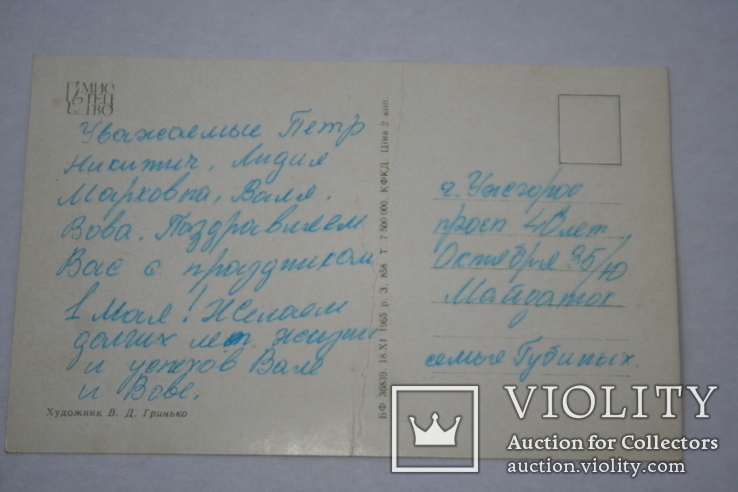 МИС
ТЕЦ
ТВО
Уважаемые Петр
Никитич, Лидия
Марковна, Валя,
Вова. Поздравляем
Вас с праздником
1 Мая! Желаем
долгих лет жизни
и успехов Вале
и Вове.
Художник В. Д. Гринько
БФ 36839. 18.XI 1965 р. З. 858. Т. 7 500 000. КФКД. Ціна 2 коп.
г. Ужгород
просп 40 лет
Октября 35/10
семье Губиных.
VIOLITY
Auction for Collectors
auction.violity.com